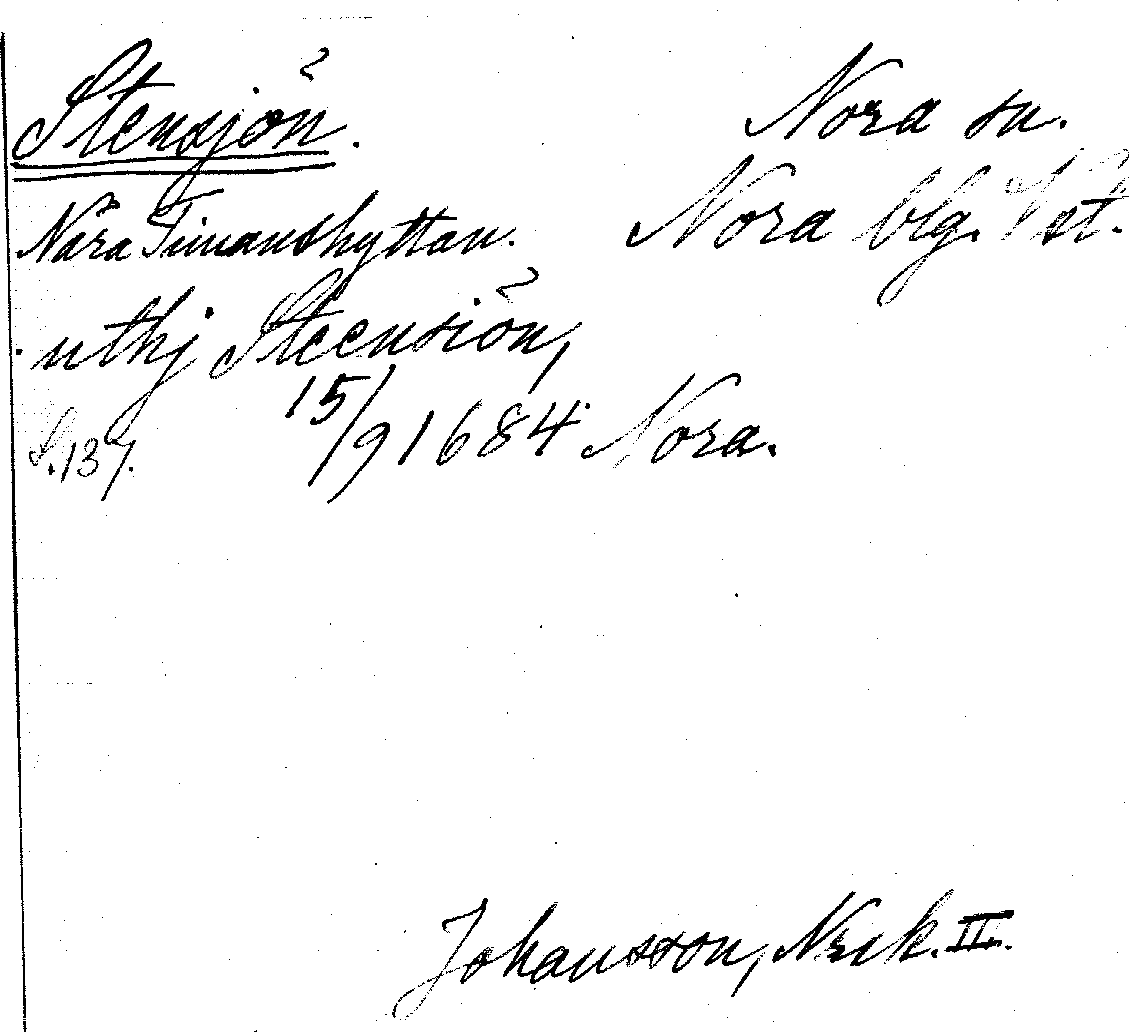 Stensjön.
Nora sn.
Nära Timanshyttan.
Nora blg. Vst.
uthj Steensiön,
S. 137. 15/9 1684 Nora.
Johansson, Nrik. II.